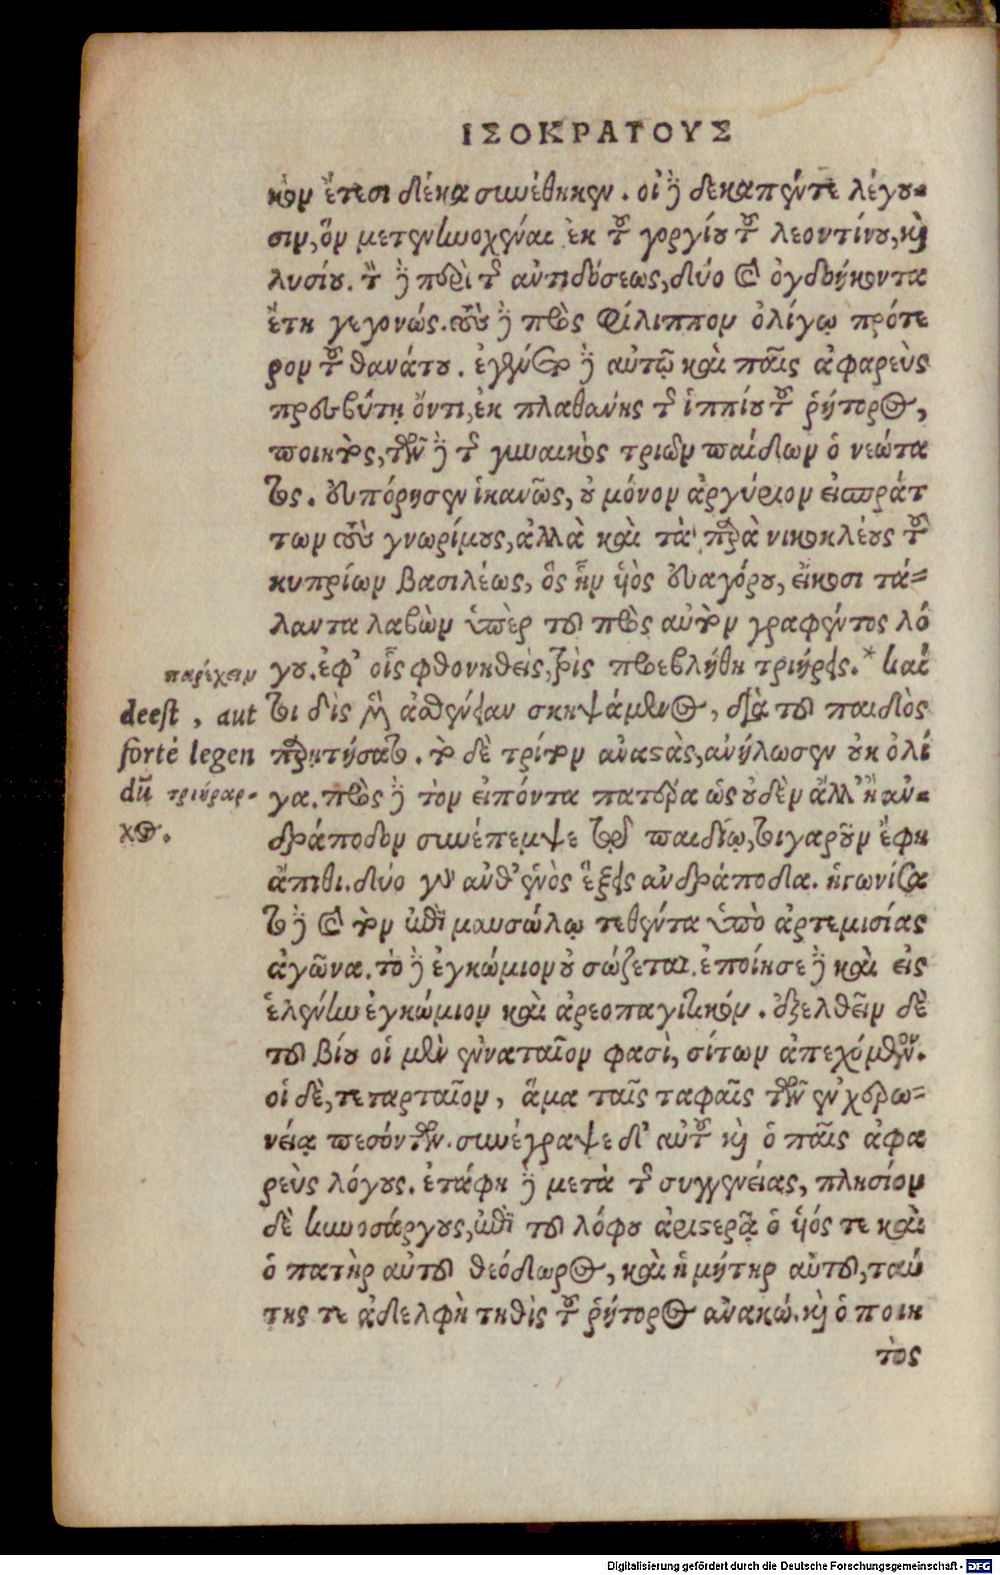 ΙΣΟΚΡΑΤΟΥΣ
κὸν ἔτεσι δέκα συνέθηκεν. οἱ δὲ δεκαπέντε λέγου-
σιν, ὃν μετενηνοχέναι ἐκ τοῦ γοργίου τοῦ λεοντίνου, καὶ
λυσίου. τὸν δὲ περὶ τῆς ἀντιδόσεως, δύο καὶ ὀγδοήκοντα
ἔτη γεγονώς. τοὺς δὲ πρὸς Φίλιππον ὀλίγῳ πρότε
ρον τοῦ θανάτου. ἐγένετο δὲ αὐτῷ καὶ παῖς ἀφαρεὺς
πρεσβύτῃ ὄντι, ἐκ πλαθάνης τῆς ἱππίου τοῦ ῥήτορος,
ποιητὸς, τῶν δὲ τῆς γυναικὸς τριῶν παίδων ὁ νεώτα
τος. εὐπόρησεν ἱκανῶς, οὐ μόνον ἀργύριον εἰσπράτ
των τοὺς γνωρίμους, ἀλλὰ καὶ τὰ παρὰ νικοκλέους τοῦ
κυπρίων βασιλέως, ὃς ἦν υἱὸς εὐαγόρου, εἴκοσι τά-
λαντα λαβὼν ὑπὲρ τοῦ πρὸς αὐτὸν γραφέντος λό
γου. ἐφ' οἷς φθονηθεὶς, τρὶς προεβλήθη τριήραρ.* καὶ
τοι δὶς μὲν ἀσθένειαν σκηψάμενος, διὰ τοῦ παιδὸς
παρῃτήσατο. τὸ δὲ τρίτον ἀναστὰς, ἀνήλωσεν οὐκ ὀλί
γα. πρὸς δὲ τὸν εἰπόντα πατέρα ὡς οὐδὲν ἄλλ' ἢ ἀν-
δράποδον συνέπεμψε τῷ παιδίῳ, τοιγαροῦν ἔφη
ἄπιθι. δύο γὰρ ἀνθ' ἑνὸς ἕξεις ἀνδράποδα. ἠγωνίσα
το δὲ καὶ τὸν ἐπὶ μαυσώλῳ τεθέντα ὑπὸ ἀρτεμισίας
ἀγῶνα. τὸ δὲ ἐγκώμιον οὐ σώζεται. ἐποίησε δὲ καὶ εἰς
ἑλένην ἐγκώμιον καὶ ἀρεοπαγιτικόν. ἐξελθεῖν δὲ
τοῦ βίου οἱ μὲν ἐνναταῖον φασὶ, σίτων ἀπεχόμενον.
οἱ δὲ, τεταρταῖον, ἅμα ταῖς ταφαῖς τῶν ἐν χερω-
νείᾳ πεσόντων. συνέγραψε δ' αὐτοῦ καὶ ὁ παῖς ἀφα
ρεὺς λόγους. ἐτάφη δὲ μετὰ τῆς συγγενείας, πλησίον
δὲ κυνοσάργους, ἐπὶ τοῦ λόφου ἀριστερᾷ ὁ υἱός τε καὶ
ὁ πατὴρ αὐτοῦ θεόδωρος, καὶ ἡ μήτηρ αὐτοῦ, ταύ
της τε ἀδελφὴ τηθὶς τοῦ ῥήτορος ἀνακώ. καὶ ὁ ποιη
τὸς
παρέχειν
deest, aut
fortè legen
dũ τριήραρ-
χος.
Digitalisierung gefördert durch die Deutsche Forschungsgemeinschaft - DFG